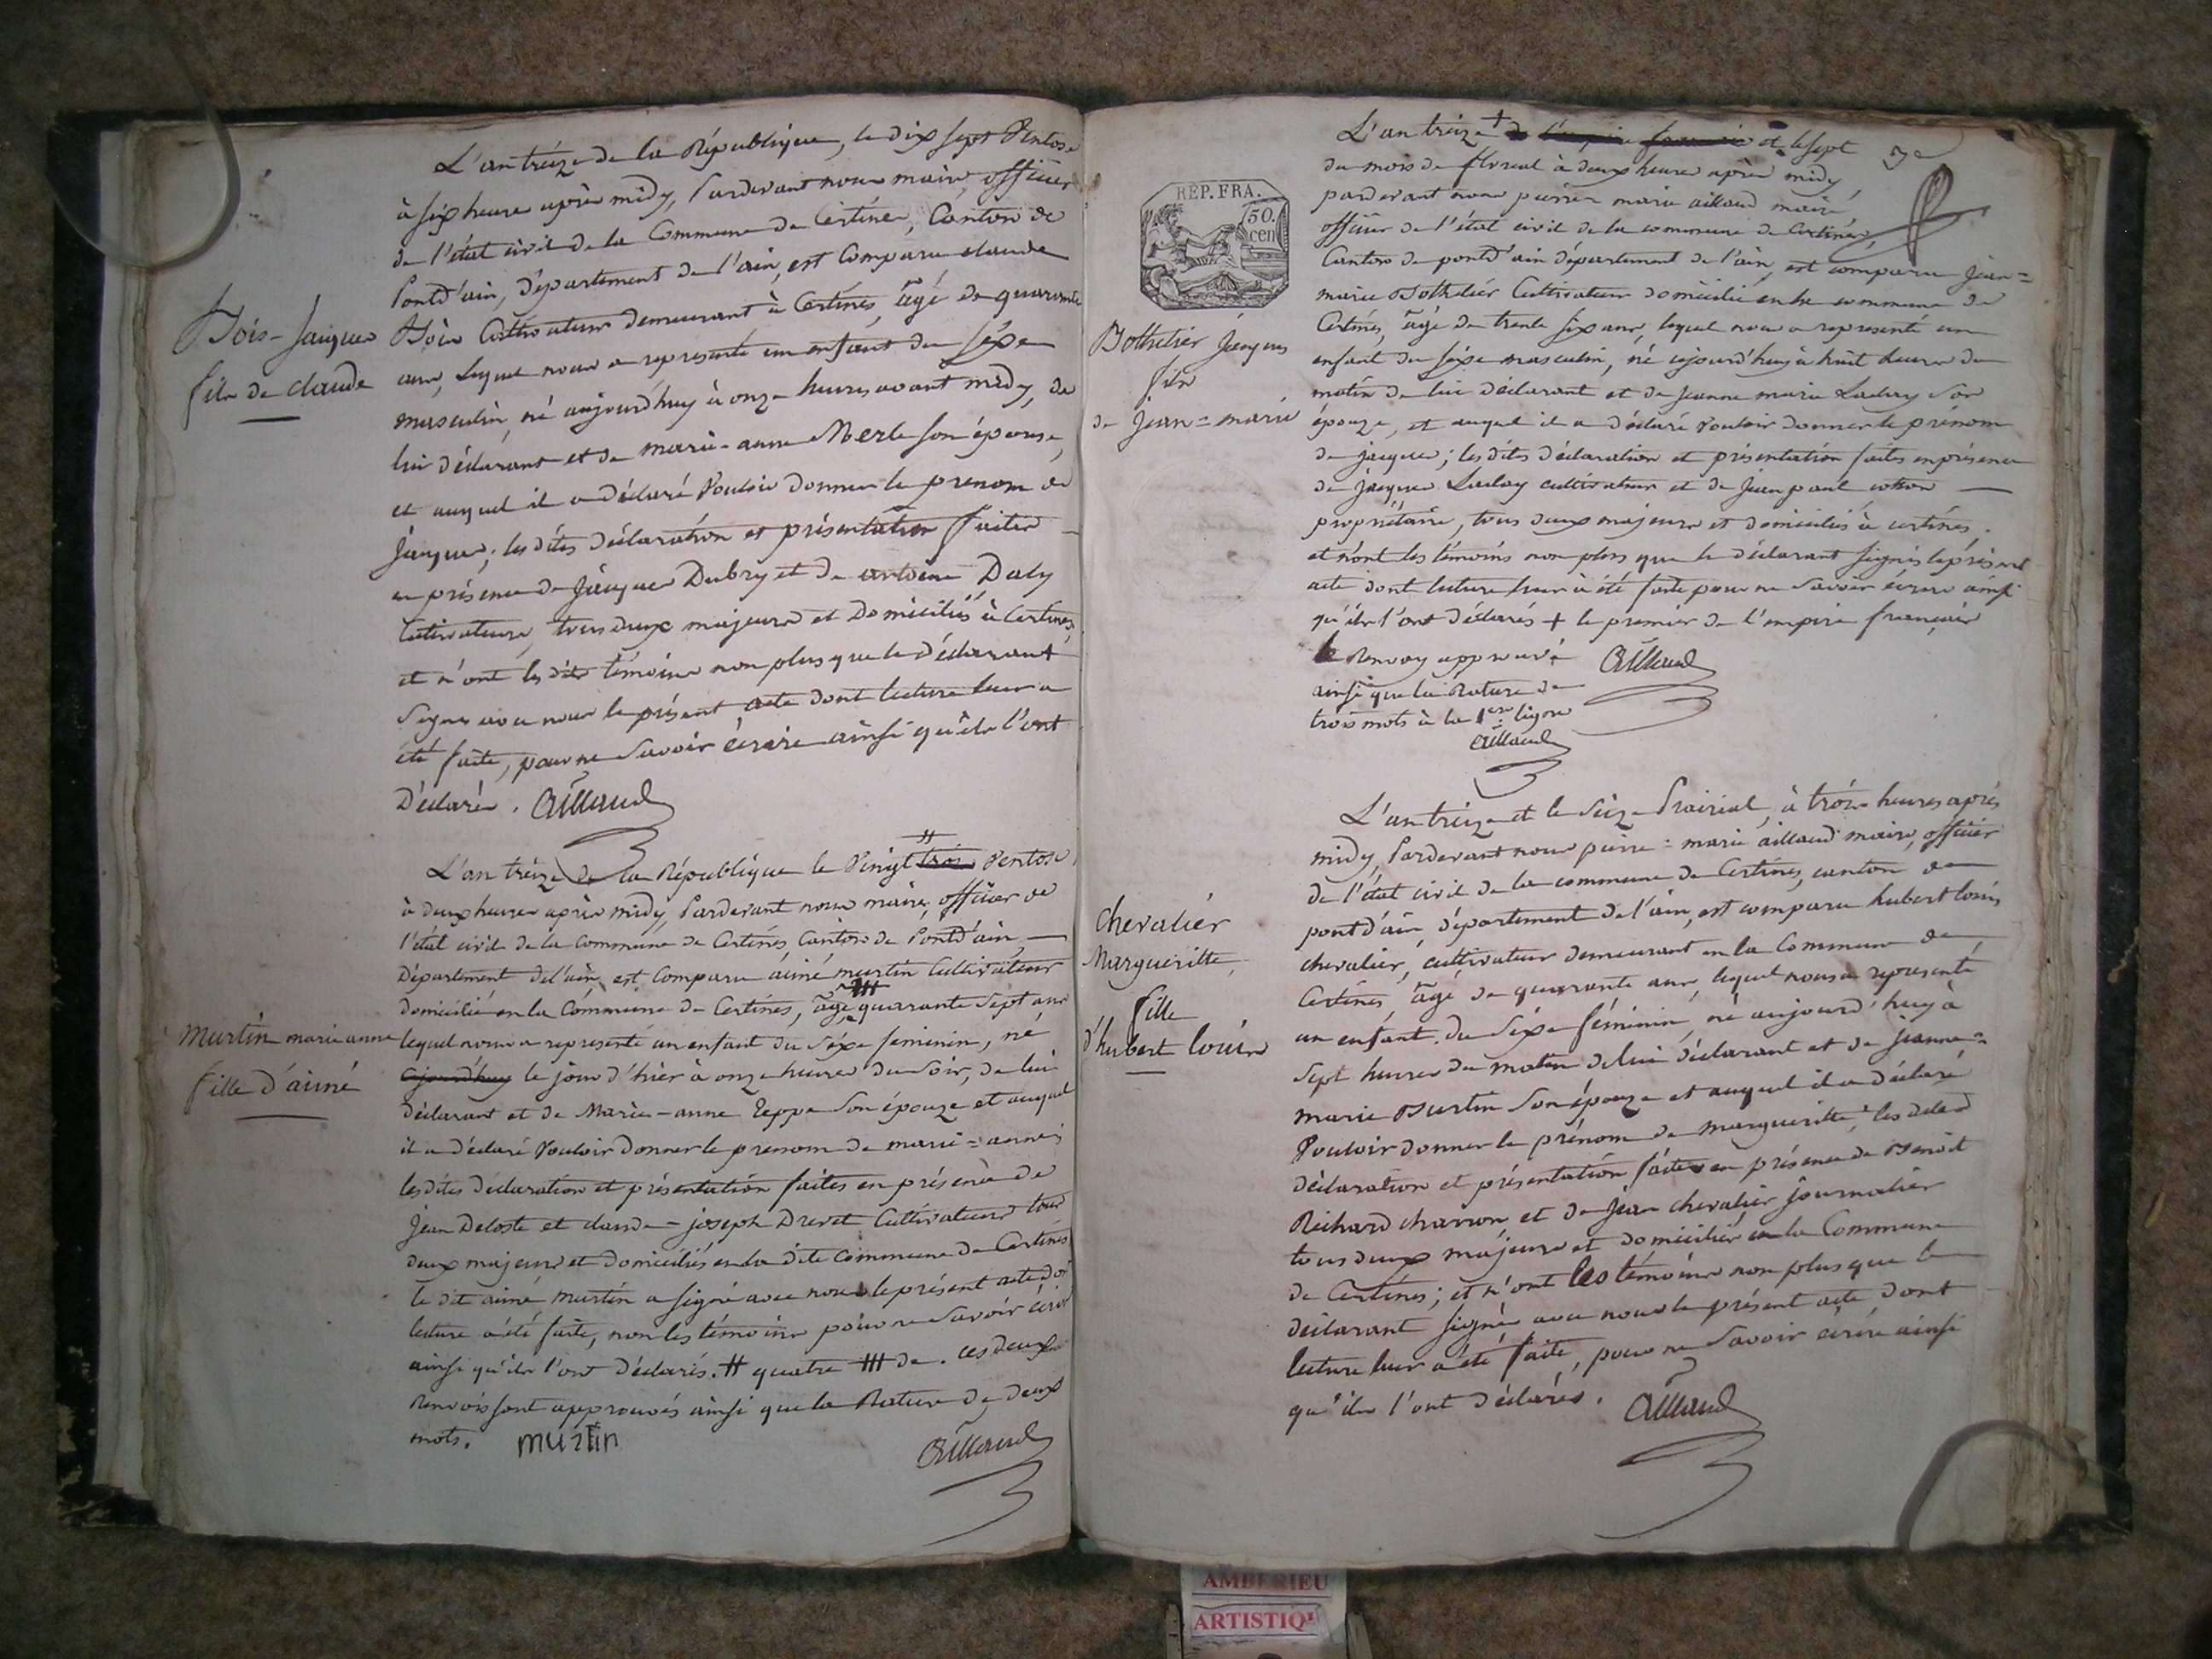 L'an treize de la République, le dix sept Ventose
à six heure après midy, Pardevant nous maire, officier
de l'état civil de la Commune de Certines, Canton de
Pontd'ain, département de l'ain, est Comparu claude
Bois Cultivateur demeurant à Certines, âgé de quarante
ans, Lequel nous a representé un enfant du séxe
masculin, né aujourd'huy à onze heures avant midy, de
lui déclarant et de marie-anne Merle son épouse,
et auquel il a déclaré Vouloir donner le prenom de
jacques; les dites déclaration et présentation faites
en présence de jacques Dubry et de antoine Daly
Cultivateurs, tous deux majeurs et Domiciliés à Certines,
et n'ont les dits témoins non plus que le déclarant
Signé avec nous le présent acte dont lecture leur a
été faite, pour ne Savoir écrire ainsi qu'ils l'ont
Déclaré. Aillaud
Bois-jacques
fils de claude
L'an treize de la République le Vingt trois Ventose
à deux heures après midy, Pardevant nous maire, officier de
l'état civil de la Commune de Certines, Canton de Pontd'ain,
Département de l'ain, est Comparu aimé murtin Cultivateur
domicilié en la Commune de Certines, âgé quarante Sept ans
lequel nous a representé un enfant du séxe feminin, né
ajourd'huy le jour d'hier à onze heures du Soir, de lui
déclarant et de Marie-anne Teppe Son épouze et auquel
il a déclaré Vouloir donner le prenom de marie=anne;
les dites déclaration et présentation faites en présence de
jean Deloste et claude-joseph Drevet Cultivateurs tous
deux majeurs et domiciliés en la dite commune de Certines
le dit aimé murtin a signé avec nous le présent acte dont
lecture a été faite, non les témoins pour ne Savoir écrire
ainsi qu'ils l'ont déclarés. # quatre ## de. ces deux
Renvois sont approuvés ainsi que la Rature de deux
mots. murtin Aillaud
Murtin marie anne
fille d'aimé
3e
L'an treize + de l'empire francais et le sept
du mois de floreal à deux heures après midy,
pardevant nous pierre marie aillaud maire,
officier de l'état civil de la commune de Certines,
Canton de pontd'ain département de l'ain, est comparu jean=
marie Bothelier Cultivateur domicilié en la commune de
Certines, âgé de trente six ans, lequel nous a representé un
enfant du séxe masculin, né ajourd'huy à huit heures du
matin de lui déclarant et de jeanne marie Laclay son
épouze, et auquel il a déclaré Vouloir donner le prénom
de jacques; les dites déclaration et présentation faites en présence
de jacques Laclay cultivateur et de jean paul cotton
propriétaire, tous deux majeurs et domiciliés à certines.
et n'ont les témoins non plus que le déclarant Signés le présent
acte dont lecture leur à été faite pour ne Savoir écrire ainsi
qu'ils l'ont déclarés + le premier de l'empire français
le Renvoy approuvé Aillaud
ainsi que la Rature de
trois mots à la 1ere ligne
Aillaud
REP. FRA.
50.
cen
Bothelier jacques
fils
de jean=marie
L'an treize et le Seize Prairial, à trois heures après
midy, Pardevant nous pierre=marie aillaud maire, officier
de l'état civil de la commune de Certines, canton de
pontd'ain, département de l'ain, est comparu hubert louis
chevalier, cultivateur demeurant en la Commune de
Certines, âgé de quarante ans, lequel nous a representé
un enfant du Séxe féminin, né aujourd'huy à
Sept heures du matin de lui déclarant et de jeanne=
marie Burtin Son épouze et auquel il a déclaré
Vouloir donner le prénom de marguéritte, les dites
déclaration et présentation faites en présence de Benoit
Richard charron, et de jean chevalier journalier
tous deux majeurs et domiciliés en la Commune
de Certines; et n'ont les témoins non plus que le
déclarant Signé avec nous le présent acte dont
lecture leur a été faite, pour ne Savoir écrire ainsi
qu'ils l'ont déclarés. Aillaud
chevaliér
Marguéritte,
fille
d'hubert louis
AMBERIEU
ARTISTIQ